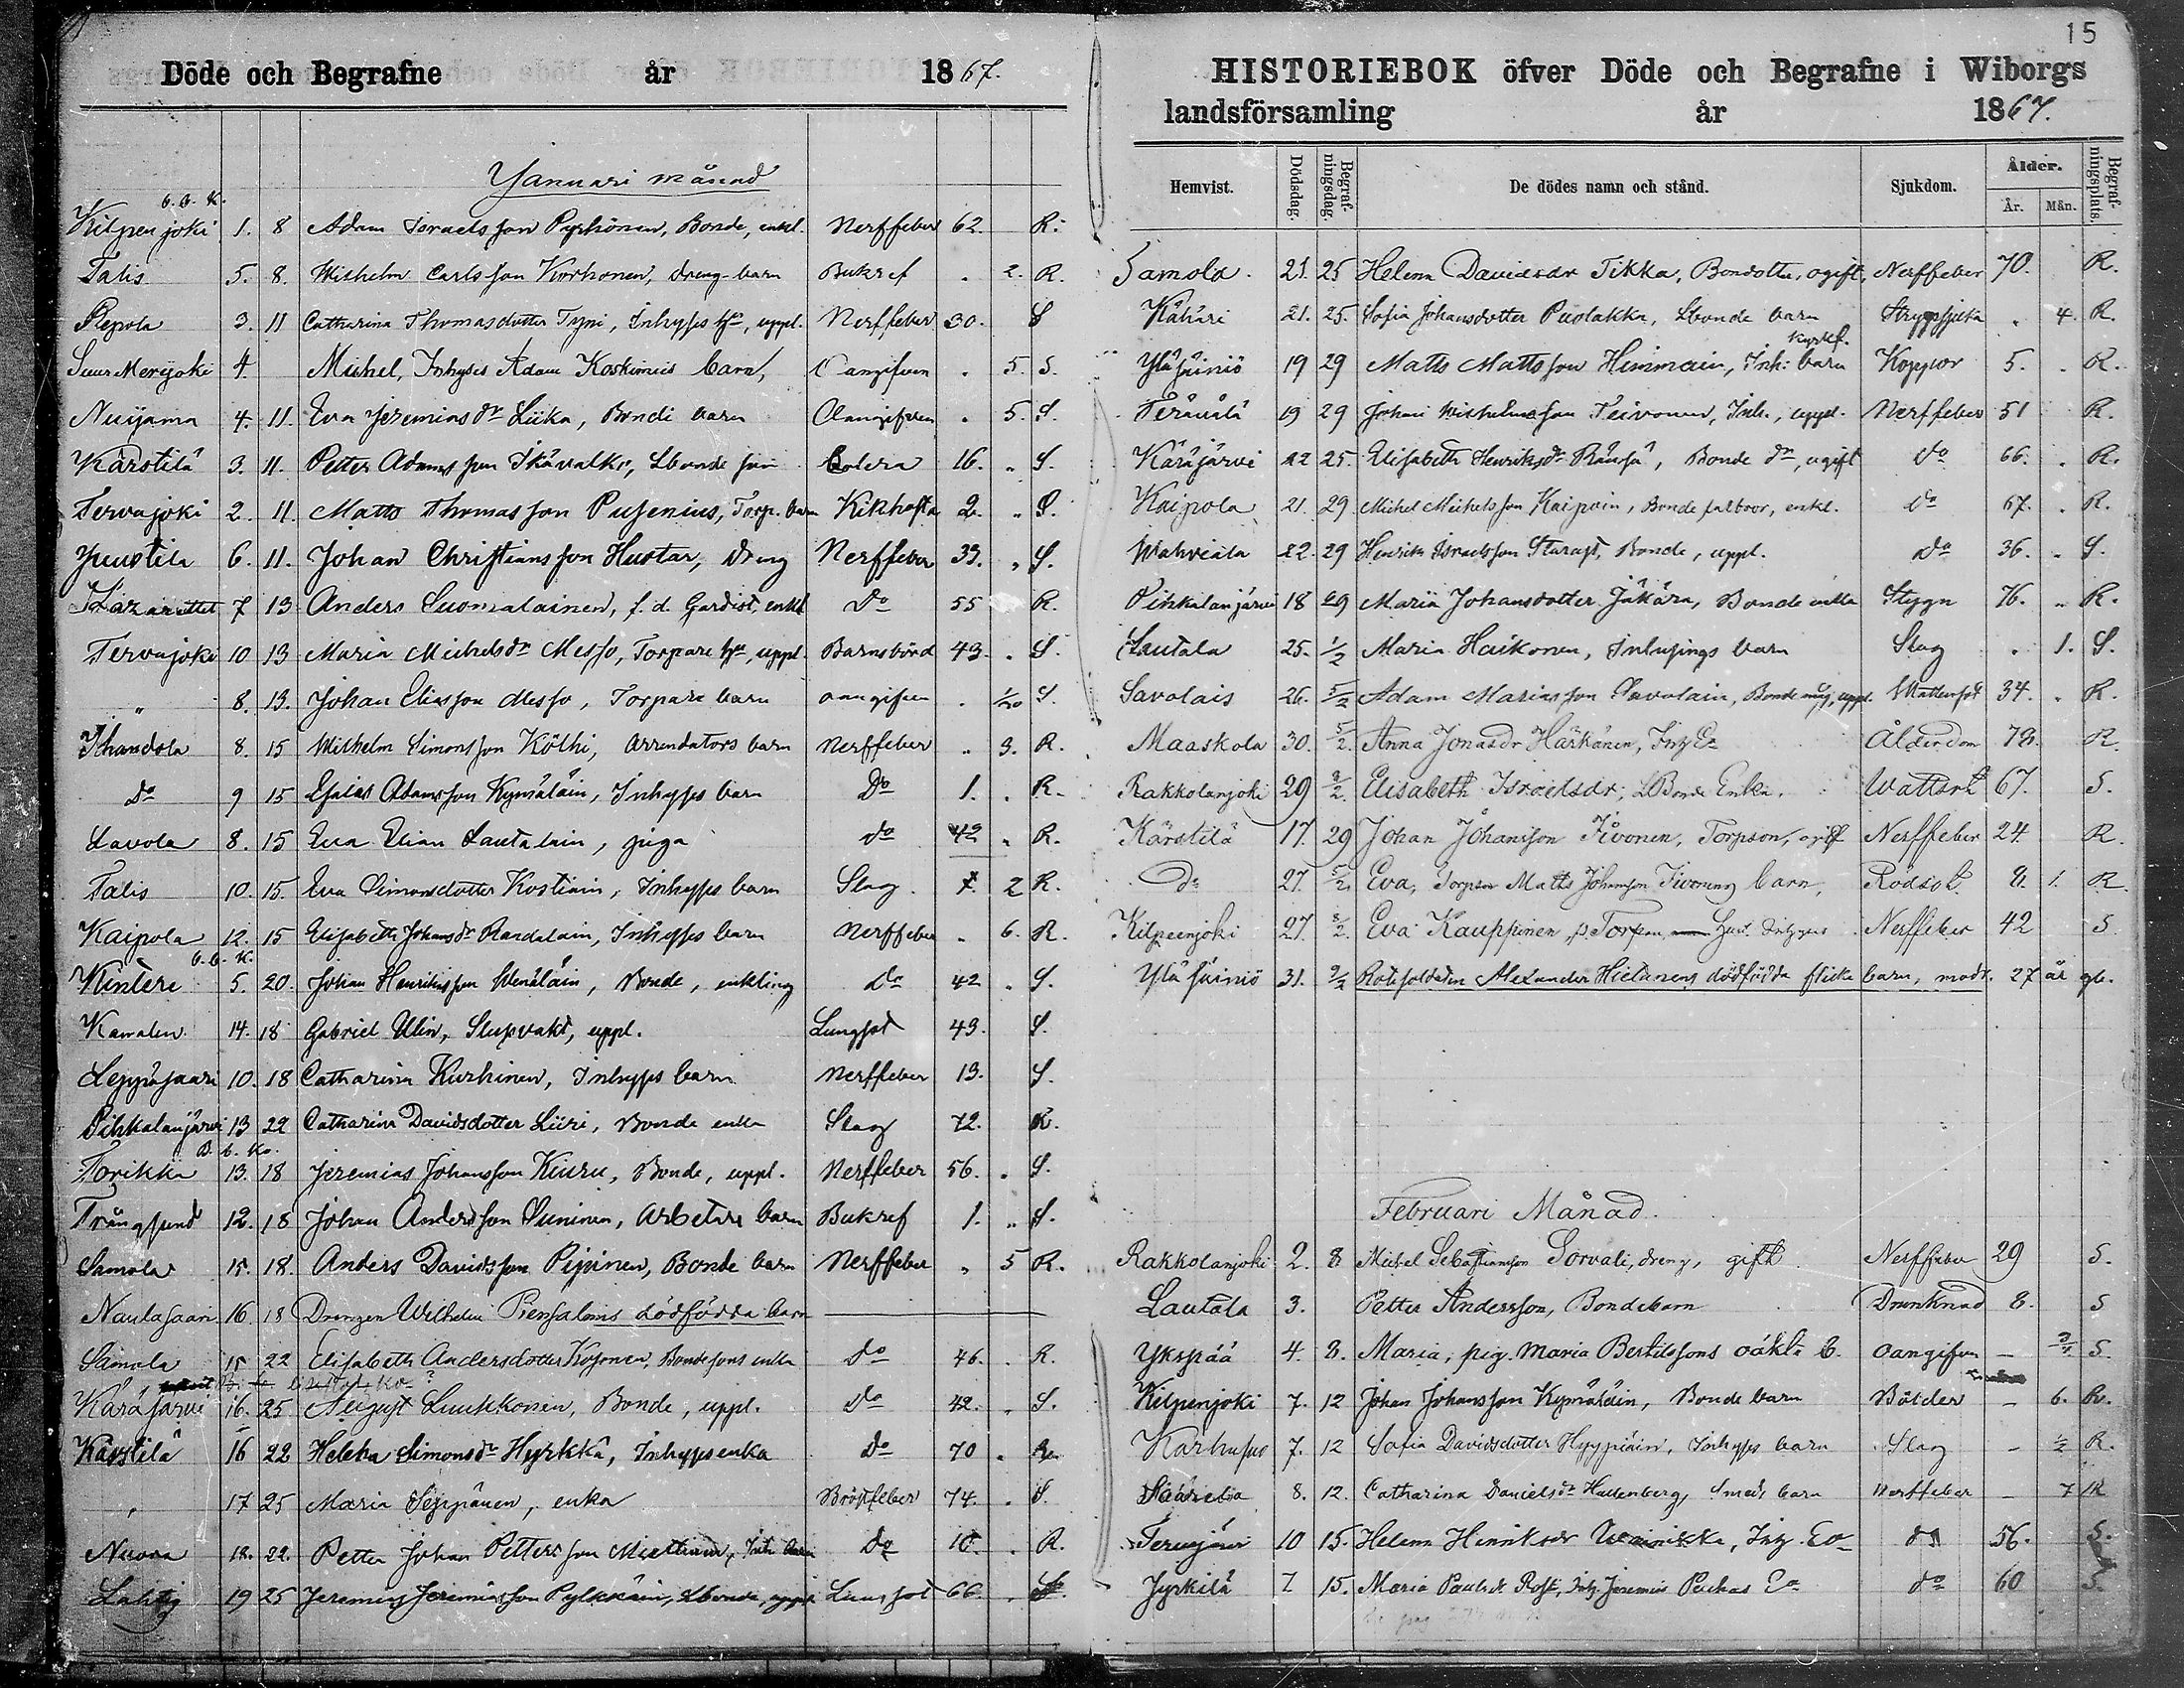 Döde och Begrafne år 1867.
Januari månad
Kilpenjoki 1. 8 Adam Israelsson Pyrhönen, Bonde, enkl. Nerffeber 62. R.
Talis 5. 8. Wilhelm Carlsson Korhonen, dreng-barn Bukref . 2. R.
Repola 3. 11 Catharina Thomasdotter Tyni, Inhyses h:u, uppl. Nerffeber 30. S
Suur Merijoki 4. Michel, Inhyses Adam Koskimies barn, Oangifven . 5. S.
Nuijama 4. 11. Eva Jeremias dr Liika, Bonde barn Oangifven . 5. S.
Kärstilä 3. 11. Petter Adamsson Ikävalko, Lbonde son Colera 16. . S.
Tervajoki 2. 11. Matts Thomasson Pusenius, Torp. barn Kikhosta 2. . S.
Juustila 6. 11. Johan Christiansson Hustar, Dreng Nerffeber 33. . S.
Lazarettet 7 13 Anders Suomalainen, f.d. Gardist, enkl Do 55 R.
Tervajoki 10 13 Maria Michelsdr Messo, Torpare h:u, uppl. Barnsbörd 43. . S.
" 8. 13. Johan Eliasson Messo, Torpare barn oangifven . 1/20 S.
Ihandola 8. 15 Wilhelm Simonsson Kölhi, Arrendators barn Nerffeber . 3. R.
Do 9 15 Esaias Adamsson Kymäläin, Inhyses barn Do 1. . R.
Lavola 8. 15 Eva Elian Lautalain, piga do 42 . R.
Talis 10. 15. Eva Simonsdotter Kostiain, Inhyses barn Slag 7. 2 R.
Kaipola 12. 15 Elisabeth Johansdr Randalain, Inhyses barn Nerffeber . 6. R.
Kintere 5. 20. Johan Henriksson Wenäläin, Bonde, enkling do 42 . S.
Kamalen 14. 18 Gabriel Ulin, Slupvakt, uppl. Lungsot 43. S.
Leppäsaari 10. 18 Catharina Kurhinen, Inhyses barn Nerffeber 13. S.
Pihkalanjärvi 13 22 Catharina Davidsdotter Liiri, Bonde enka Slag 72. R.
Torikka 13. 18 Jeremias Johansson Kiuru, Bonde, uppl. Nerffeber 56. . S.
Trångsund 12. 18 Johan Andersson Suninen, Arbetare barn Bukref 1. . S.
Samola 15. 18. Anders Davidsson Pipinen, Bonde barn Nerffeber . 5 R.
Naulasaari 16. 18 Drengen Wilhelm Piensalmis dödfödda barn
Samola 15 22 Elisabeth Andersdotter Kosonen, Bondesons enka Do 46. . R.
Kärajärvi 16. 25 August Luukkonen, Bonde, uppl. Do 42. . S.
Kärstilä 16 22 Helena Simonsdr Hyrkkä, Inhyses enka Do 70 .
" 17 25 Maria Seppänen, enka Bröstfeber 74. . S.
Nuora 18. 22. Petter Johan Pettersson Miettinen, Inh. barn Do 10. . R.
Lahtij 19 25 Jeremias Jeremiasson Pylkkäin, Lbonde, uppl. Lungsot 66. . S.
15
HISTORIEBOK öfver Döde och Begrafne i Wiborgs
landsförsamling år 1867.
Hemvist. Dödsdag. Begrafningsdag. De dödes namn och stånd. Sjukdom. Ålder. År. Mån. Begrafningsplats.
Samola. 21. 25 Helena Davidsdr Tikka, Bondotter, ogift, Nerffeber 70. R.
Kähäri 21. 25. Sofia Johansdotter Puolakka, Lbonde barn Strypsjuka . 4. R.
Ylä Säiniö 19 29 Matts Mattsson Himmain, Inh: barn Koppor 5. . R.
Teräuälä 19 29 Johan Wilhelmsson Teivonen, Inh., uppl. Nerffeber 51 R.
Käräjärvi 22 25. Elisabeth Henriksdr Ränsä, Bonde dr, ogift do 66. . R.
Kaipola 21. 29 Michel Michelsson Kaipain, Bonde farbror, enkl. do 67. . R.
Wahviala 22. 29 Henrik Israelsson Starast, Bonde, uppl. do 36. . S.
Pihkalanjärvi 18 29 Maria Johansdotter Jäkärä, Bonde enka Stygn 76. . R.
Lautala 25. 1/2 Maria Haikonen, Inhysings barn Slag . 1. S.
Savolais 26. 5/2 Adam Mariasson Savolain, Bonde måg, uppl. Wattensot 34. . R.
Maaskola 30. 5/2. Anna Jonasdr Härkönen, Inh Ea Ålderdom 78. R.
Rakkolanjoki 29 2/2. Elisabeth Israelsdr, LBonde Enka. Wattsot 67. S.
Kärstilä 17. 29 Johan Johansson Tivonen, Torpson, ogift Nerffeber 24. R.
Do 27. 5/2. Eva, Torparen Matts Johansson Tivonens barn, Rödsot 8. 1. R.
Kilpeenjoki 27. 2/2. Eva Kauppinen, Nerffeber 42 S
Ylä Säiniö 31. 2/2 Rotesoldaten Alexander Hietanens dödfödda flicke barn, modr. 27 år gl.
Februari Månad.
Rakkolanjoki 2. 8 Michel Sebastiansson Sorvali, dreng, gift Nerffeber 29 S.
Lautala 3. Petter Andersson, Bondebarn Drunknad 8. S
Ykspää 4. 8. Maria, pig. Maria Bertilssons oäkta b. oangifven — 3/4 S.
Kilpenjoki 7. 12 Johan Johansson Kymäläin, Bonde barn Bölder — 6. R.
Karhusuo 7. 12 Sofia Davidsdotter Hyypiäin, Inhyses barn Slag — 1/2 R.
Säärelä 8. 12. Catharina Danielsdr Hallenberg, Smeds barn Nerffeber — 7 R
Tervajärvi 10 15. Helena Henriksdr Wainikka, Inh. Ea do 56. S.
Jyrkilä 7 15. Maria Paulsdr Rosti, Inh. Jeremias Puhas Ea do 60 S.